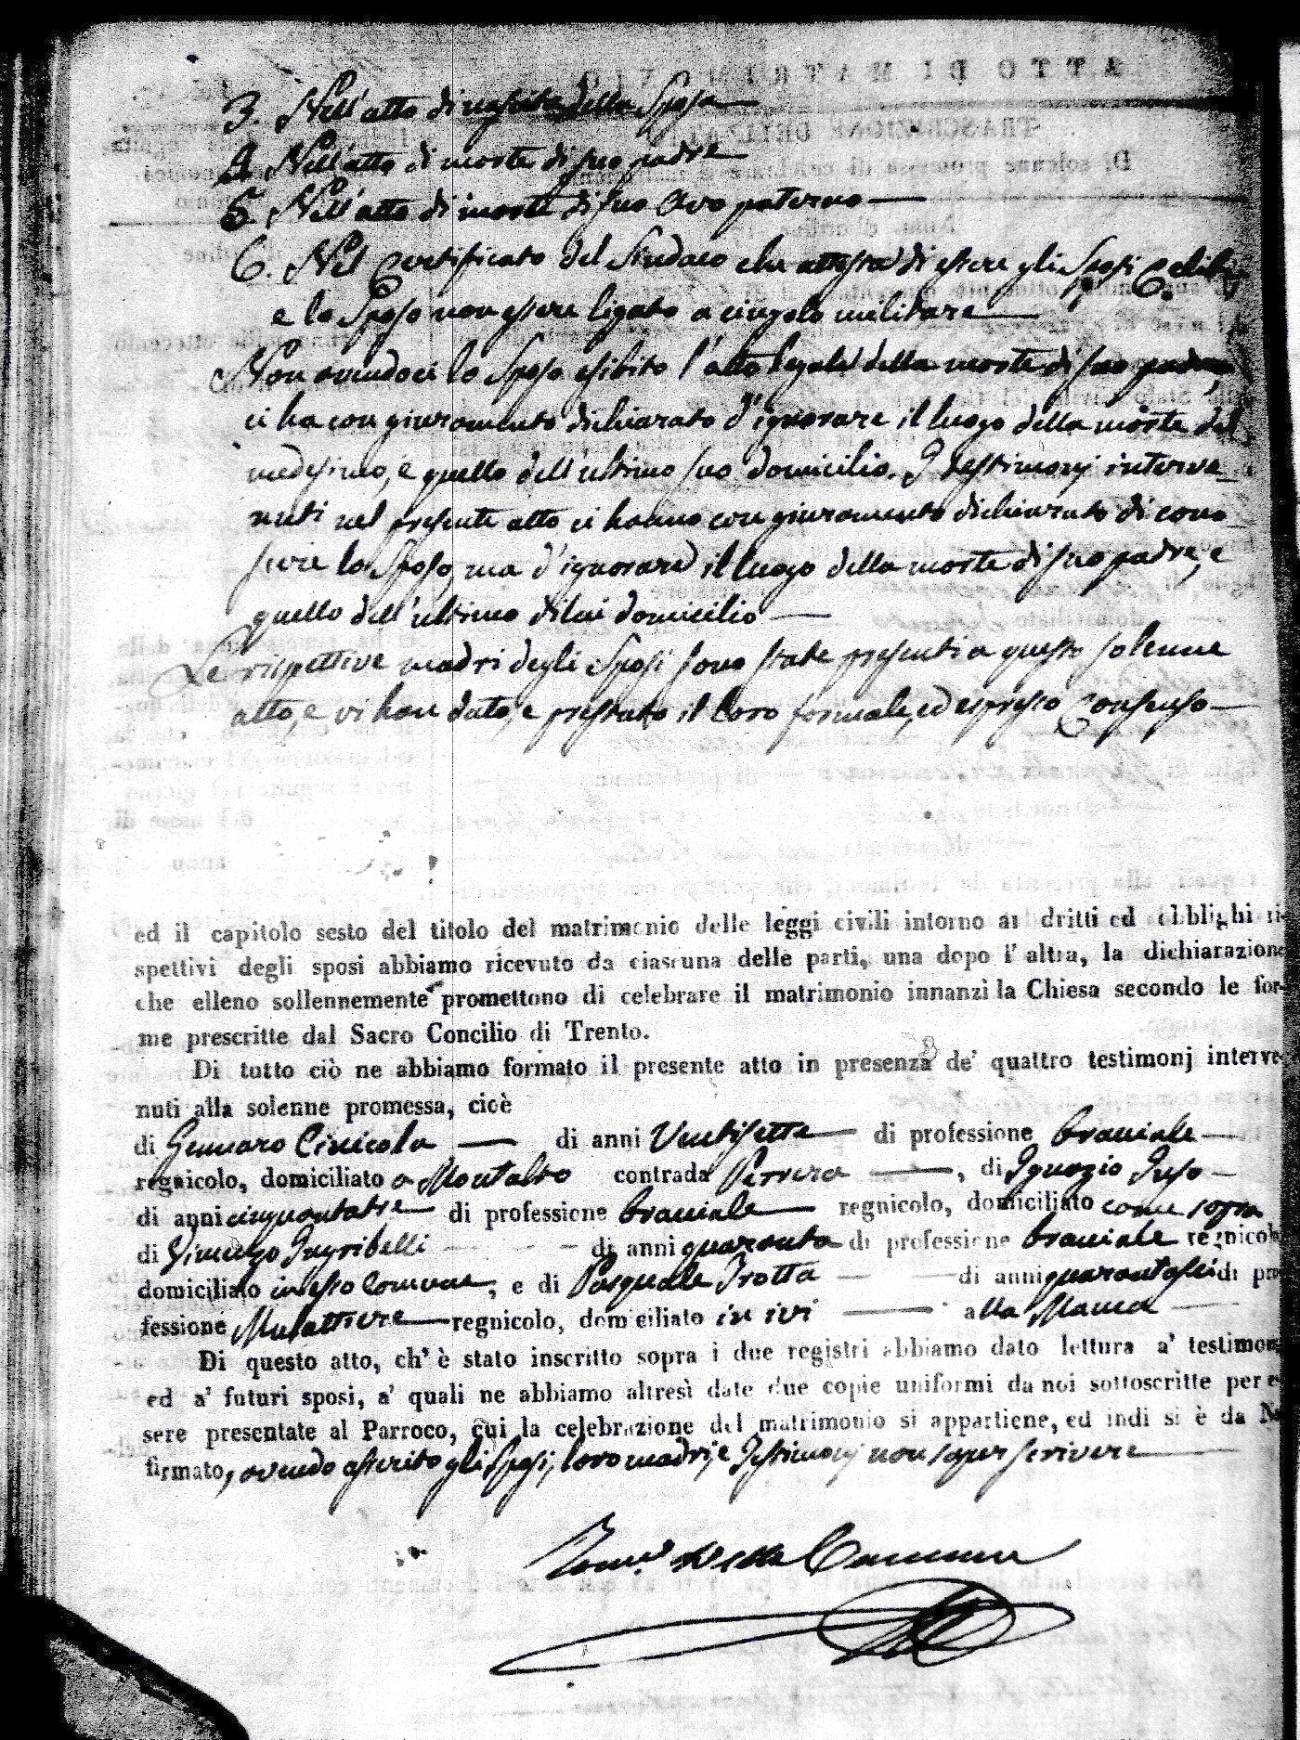 3. Nell'atto di nascita della Sposa
4. Nell'atto di morte di suo padre
5. Nell'atto di morte di suo Avo paterno
6. Nel Certificato del Sindaco che attesta di essere gli Sposi Celibi,
e lo Sposo non essere ligato a cingolo militare
Non avendoci lo Sposo esibito l'atto legale della morte di suo padre,
ci ha con giuramento dichiarato d'ignorare il luogo della morte del
medesimo, e quello dell'ultimo suo domicilio. I testimonj interve
nuti nel presente atto ci hanno con giuramento dichiarato di cono
scere lo Sposo, ma d'ignorare il luogo della morte di suo padre, e
quello dell'ultimo di lui domicilio
Le rispettive madri degli Sposi sono state presenti a questo solenne
atto, e vi han dato, e prestato il loro formale, ed espresso Consenso
ed il capitolo sesto del titolo del matrimonio delle leggi civili intorno ai dritti ed obblighi ri-
spettivi degli sposi abbiamo ricevuto da ciascuna delle parti, una dopo l'altra, la dichiarazione
che elleno sollennemente promettono di celebrare il matrimonio innanzi la Chiesa secondo le for-
me prescritte dal Sacro Concilio di Trento.
Di tutto ciò ne abbiamo formato il presente atto in presenza de' quattro testimonj interve-
nuti alla solenne promessa, cioè
di Gennaro Cinicola di anni Ventisette di professione bracciale
regnicolo, domiciliato a Montalto contrada , di Ignazio
di anni cinquantatre di professione bracciale regnicolo, domiciliato come sopra
di Vincenzo di anni quaranta di professione bracciale regnicolo
domiciliato in esto Comune, e di Pasquale Trotta di anni quarantasei di pro
fessione Mulattiere regnicolo, domiciliato in ivi alla Manca
Di questo atto, ch' è stato inscritto sopra i due registri abbiamo dato lettura a' testimonj
ed a' futuri sposi, a' quali ne abbiamo altresì date due copie uniformi da noi sottoscritte per es
sere presentate al Parroco, cui la celebrazione del matrimonio si appartiene, ed indi si è da No
firmato, avendo asserito gli Sposi, loro madri, e Testimonj non saper scrivere